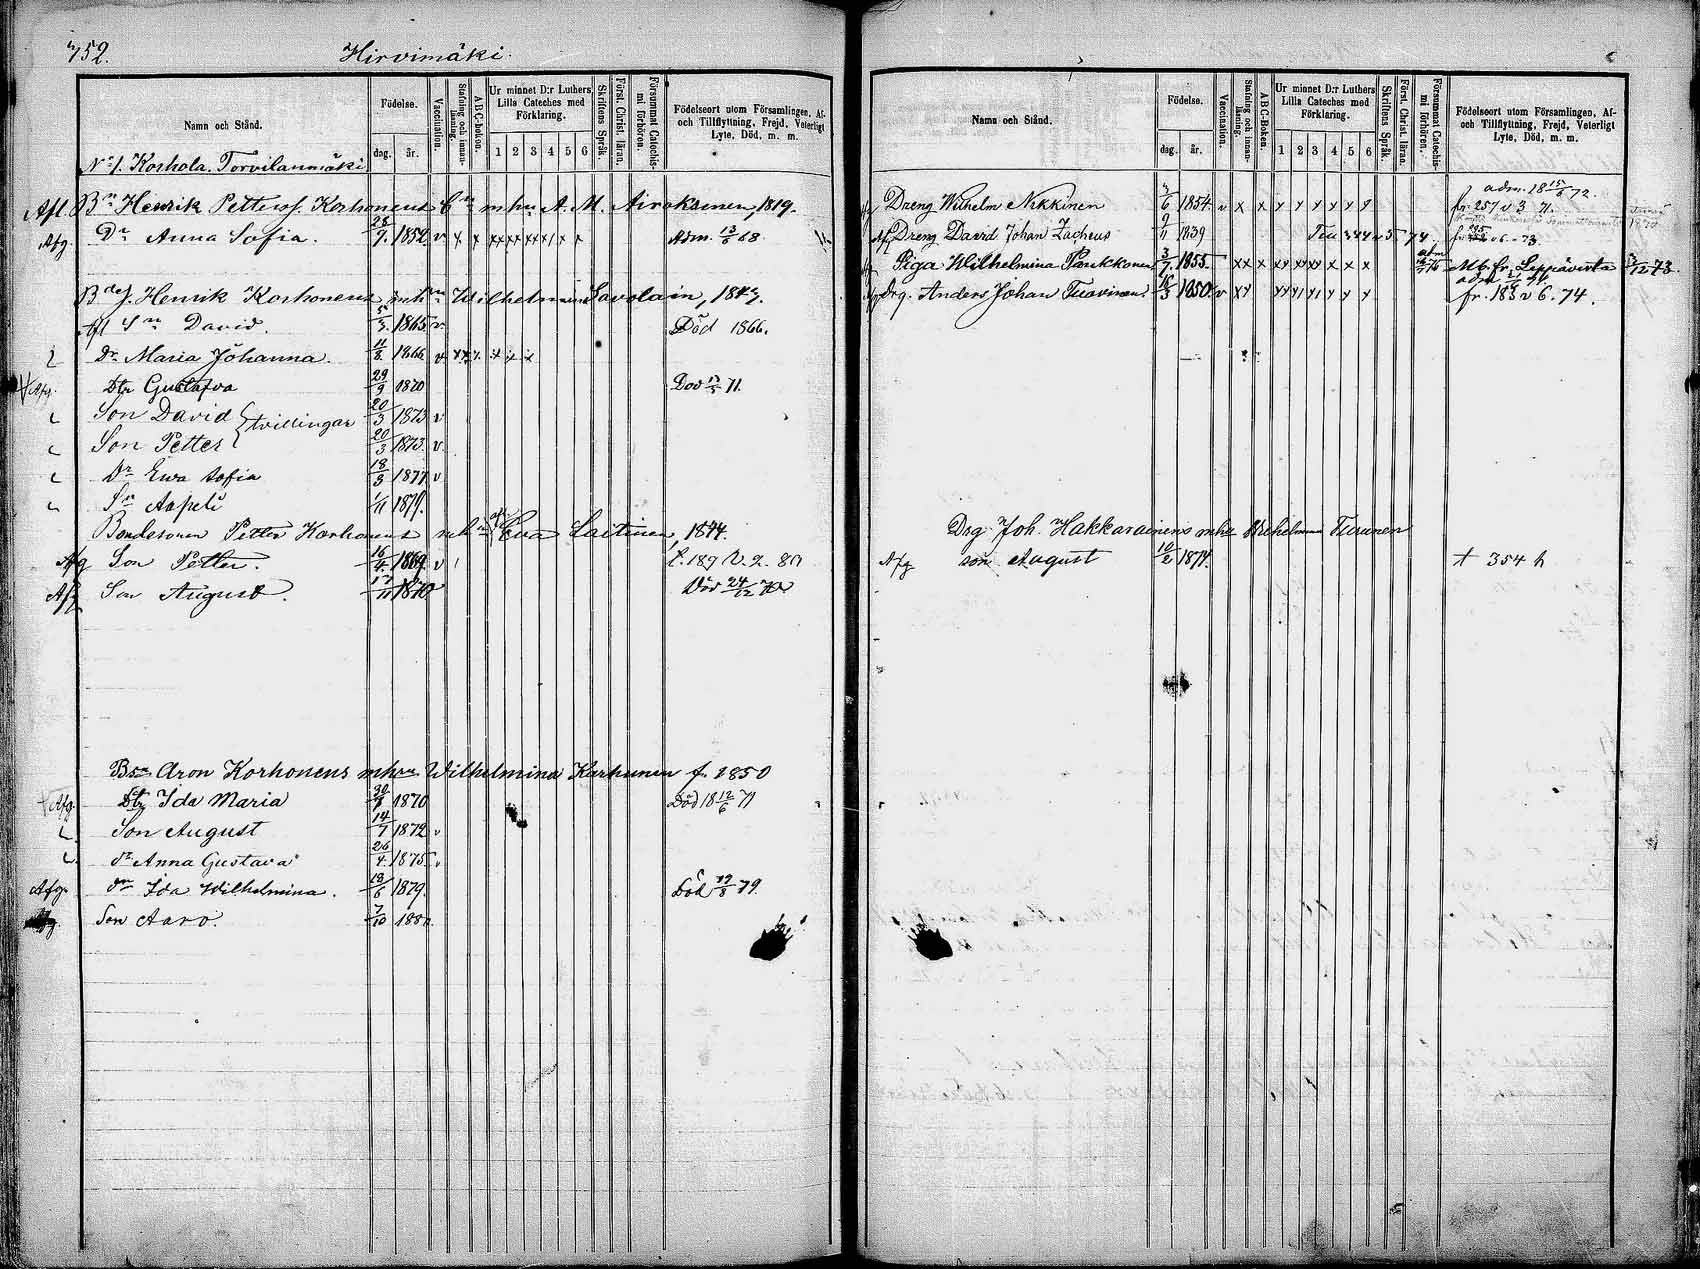 752.
Hirvimäki.
Namn och Stånd.
Födelse.
dag. år.
Vaccination.
Stafning och innan-läsning.
A B C-boken.
Ur minnet D:r Luthers Lilla Cateches med Förklaring.
1 2 3 4 5 6
Skriftens Språk.
Först. Christ. läran.
Försummat Catechismi förhören.
Födelseort utom Församlingen, Af- och Tillflyttning, Frejd, Veterligt Lyte, Död, m. m.
No 1. Korhola. Torvilanmäki
Afl. Bn Henrik Petterss. Korhonens Enka mhu A. M. Airaksinen, 1819.
Afg. Dr Anna Sofia. 28/7. 1852 v x x xx xx xx x x x Adm. 13/6 68.
Bdes. Henrik Korhonens mhu Wilhelmina Savolain, 1847.
Afl Sn David. 5/3. 1865 v. Död 1866.
Dr Maria Johanna. 11/8. 1866 v x x x. x x x
Afg. Dtr Gustafva 29/9 1870 Död 71.
Son David 20/3 1873 v
tvillingar
Son Petter 20/3 1873. v.
Dr Ewa Sofia 18/3 1877 v
Sn Aapeli 1/11 1879.
Bondesonen Petter Korhonens mhu Eva Laitinen, 1844.
Afg Son Petter. 16/4. 1869. v
Afg Son August. 17/11 1870 Död 24/12 70
Bsn Aron Korhonens mhru Wilhelmina Karhunen f. 1850
Afg. Dtr Ida Maria 1870 Död 18 12/6 71
Son August 14/7 1872 v
dr Anna Gustava 26/4. 1875. v
Afg. dr Ida Wilhelmina. 18/6 1879. Död 19/8 79.
Son Aaro. 7/10 1880.
Namn och Stånd.
Födelse.
dag. år.
Vaccination.
Stafning och innan-läsning.
A B C-Boken.
Ur minnet D:r Luthers Lilla Cateches med Förklaring.
1 2 3 4 5 6
Skriftens Språk.
Först. Christ. läran.
Försummat Catechismi förhören.
Födelseort utom Församlingen, Af- och Tillflyttning, Frejd, Veterligt Lyte, Död, m. m.
adm. 18 15/6 72.
Dreng Wilhelm Nikkinen 1854. v x x x x x x x fr. 257 v 3 71.
Afg Dreng David Johan Zacheus 9/11 1839
Piga Wilhelmina Paukkonen 3/7. 1855. x x x x x x x x x Mb. fr. Leppävirta 73.
Drg. Anders Johan Tuovinen. 1850. v x x fr. 183 v 6. 74.
Drg Joh. Hakkarainens mhu Wilhelmina Turunen
Afg son August 10/2 1877. + 354 h